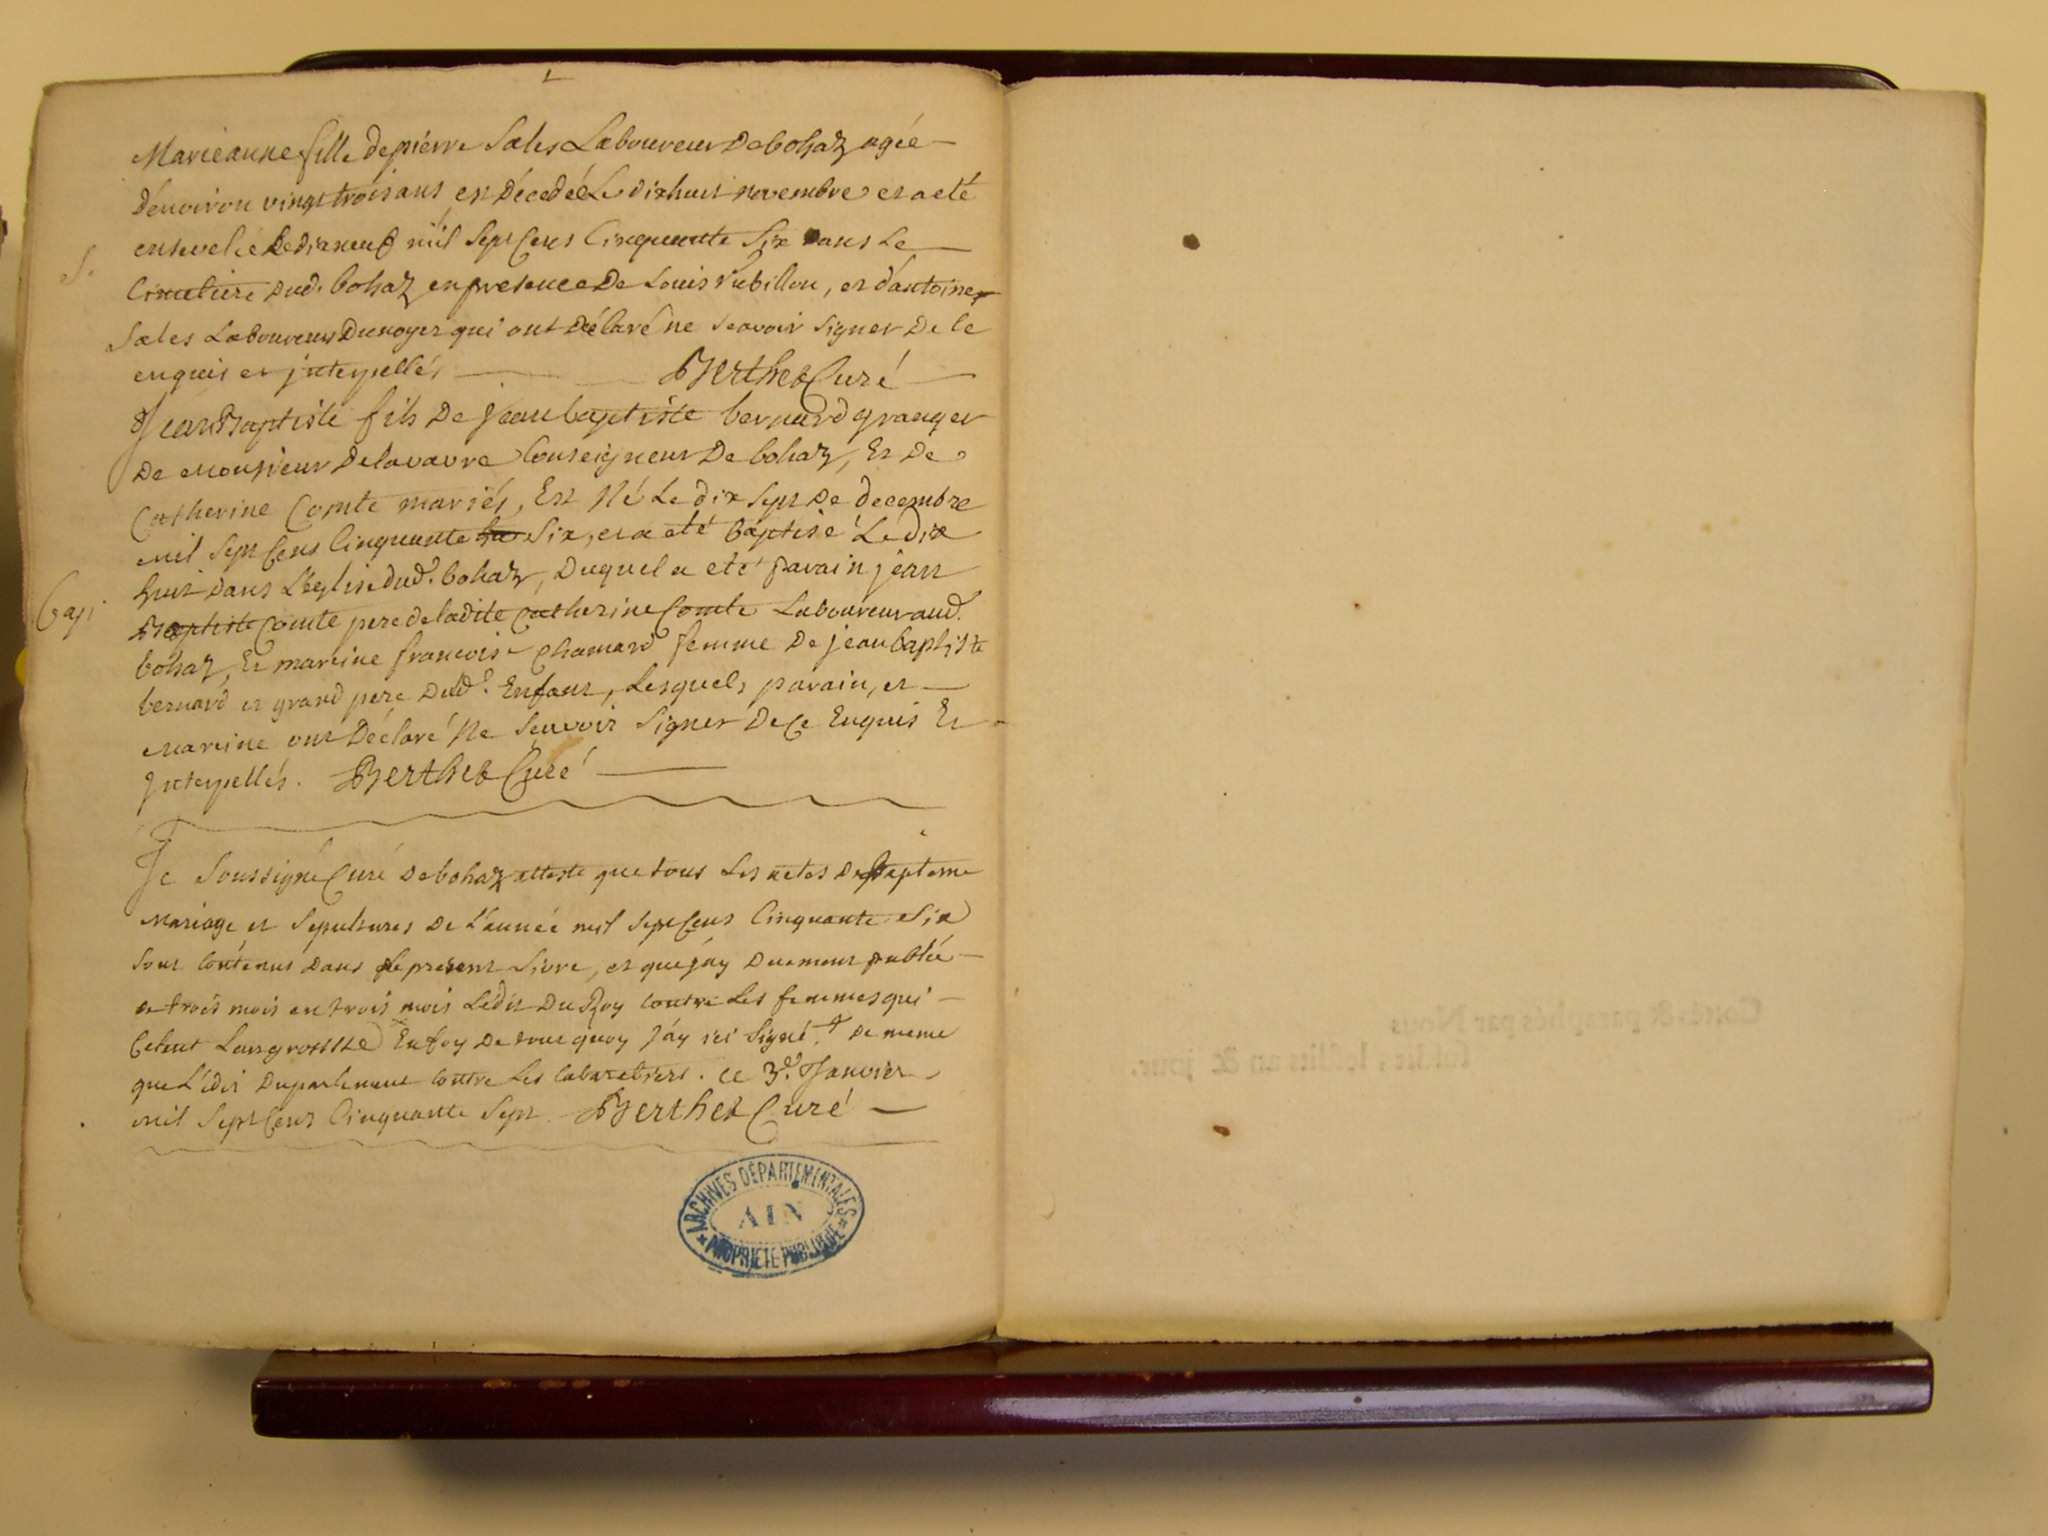 Marieanne fille de pierre Sales Laboureur De bohaz agée
d'environ vingt trois ans est décedée Le dixhuit novembre et a eté
ensevelie Le dixneuf mil Sept Cens Cinquante Six dans Le
S.
Cimetiere dud. bohaz en presence De Louis rubillon, et d'antoine
Sales Laboureurs Dunoyer qui ont Déclaré ne scavoir signer De ce
enquis et jnterpellés Berthet Curé
Jean Baptiste fils De jean baptiste bernard granger
De Monsieur Delavavre Conseigneur De bohaz, Et De
Catherine Comte mariés, Est Né Le dix Sept De decembre
mil Sept Cens Cinquante Six, et a eté baptisé Le dix
huit dans L'église dud. bohaz, Duquel a eté parain jean
Bap.
Baptiste Comte pere de ladite Catherine Comte Laboureur aud.
bohaz, Et mareine francoise Chanard femme De jean baptiste
bernard et grand pere Dud. Enfant, Lesquels parain, et
Mareine ont Déclaré Ne Scavoir Signer De Ce Enquis Et
Jnterpellés. Berthet Curé
Je Soussigné Curé De bohaz atteste que tous Les actes De Bapteme
Mariage et Sepultures De L'année mil Sept Cens Cinquante Six
Sont Contenus dans le present Livre, et que j'ay Duement publié
de trois mois en trois mois L'edit Du Roy Contre Les femmes qui
Celent Leur grossesse En foy De tout quoy J'ay ici Signé, De meme
que L'édit Duparlement Contre Les Cabaretiers. Ce 3e. Janvier
mil Sept Cens Cinquante Sept. Berthet Curé
ARCHIVES DÉPARTEMENTALES
AIN
PROPRIETE PUBLIQUE
Cottés & paraphés par Nous
lesdits an & jour.